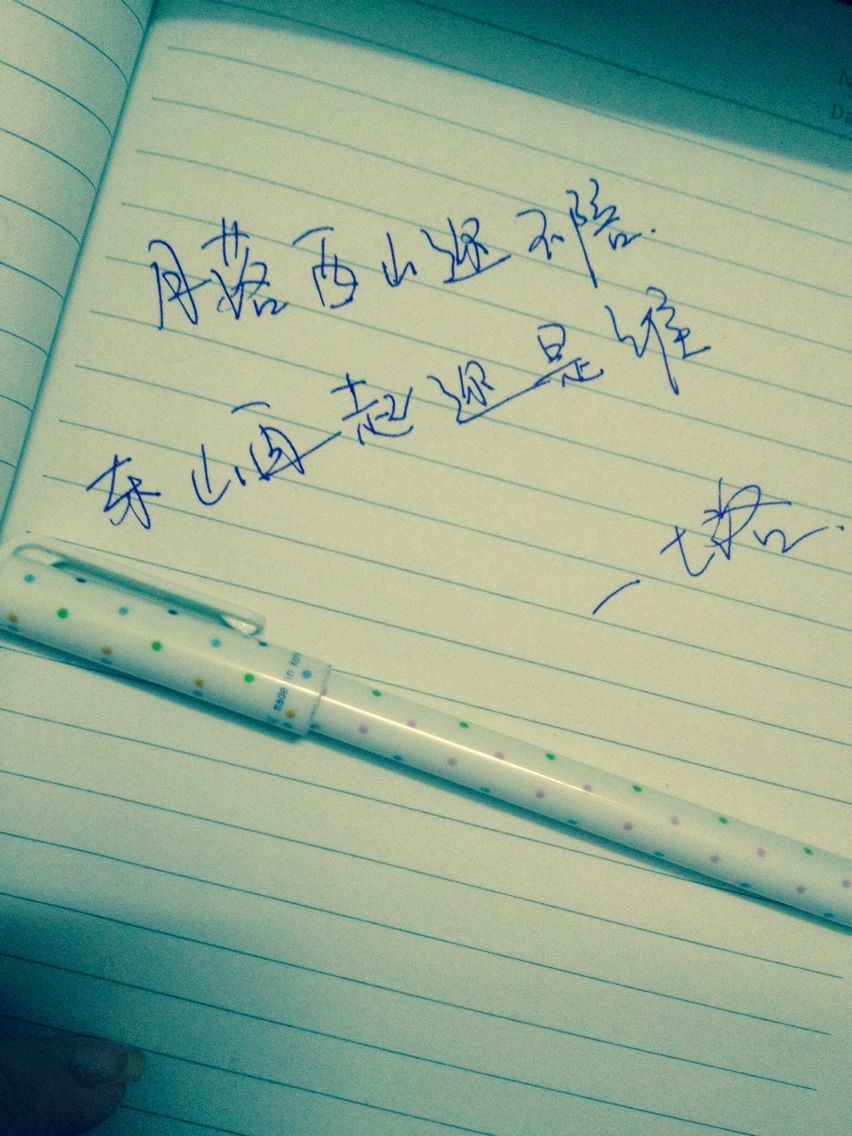 月落西山还不陪.
东山再起还是谁
一七若.
made in kor